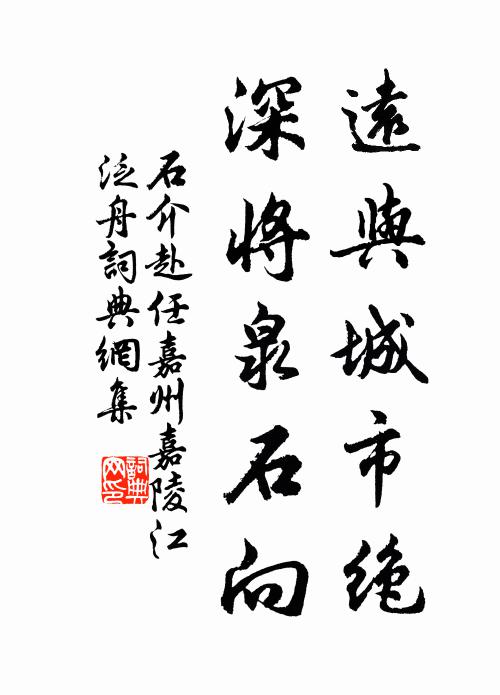 遠與城市絶
深將泉石向
石介赴任嘉州嘉陵江
泛舟詞典網集
詞典网印